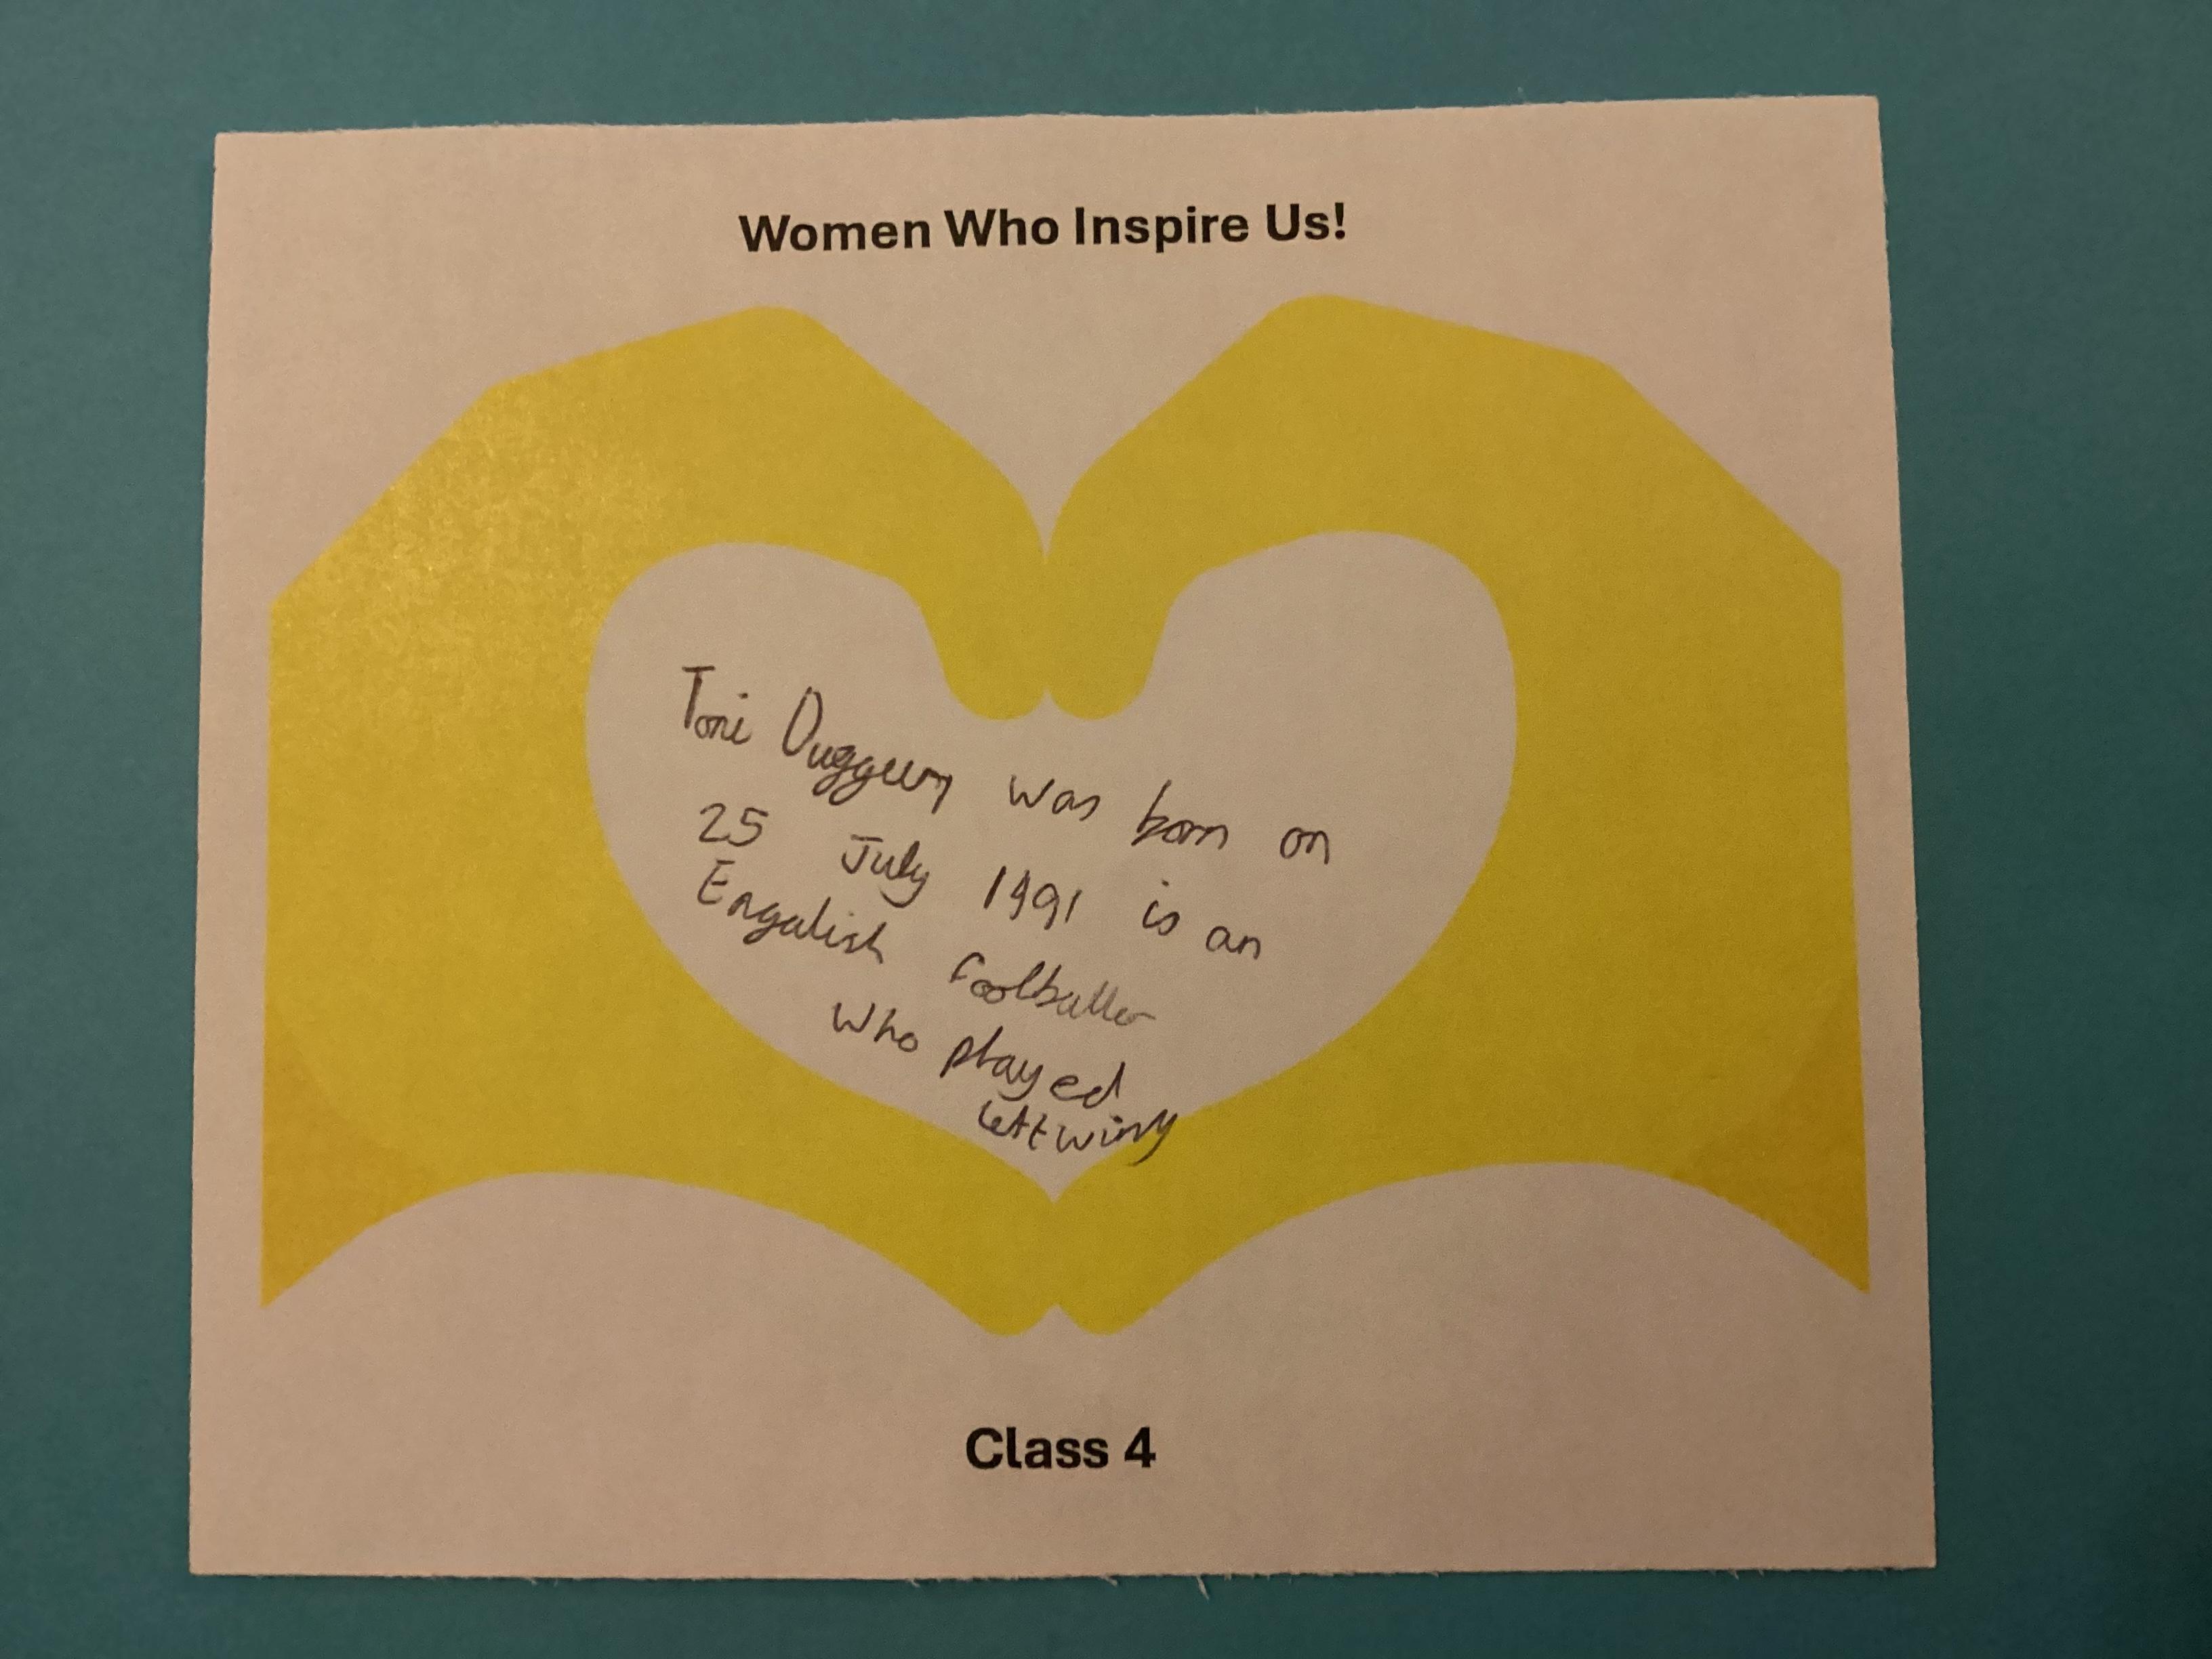 Women Who Inspire Us!
Toni Duggan was born on
25 July 1991 is an
Engalish footballer
who played
left wing
Class 4